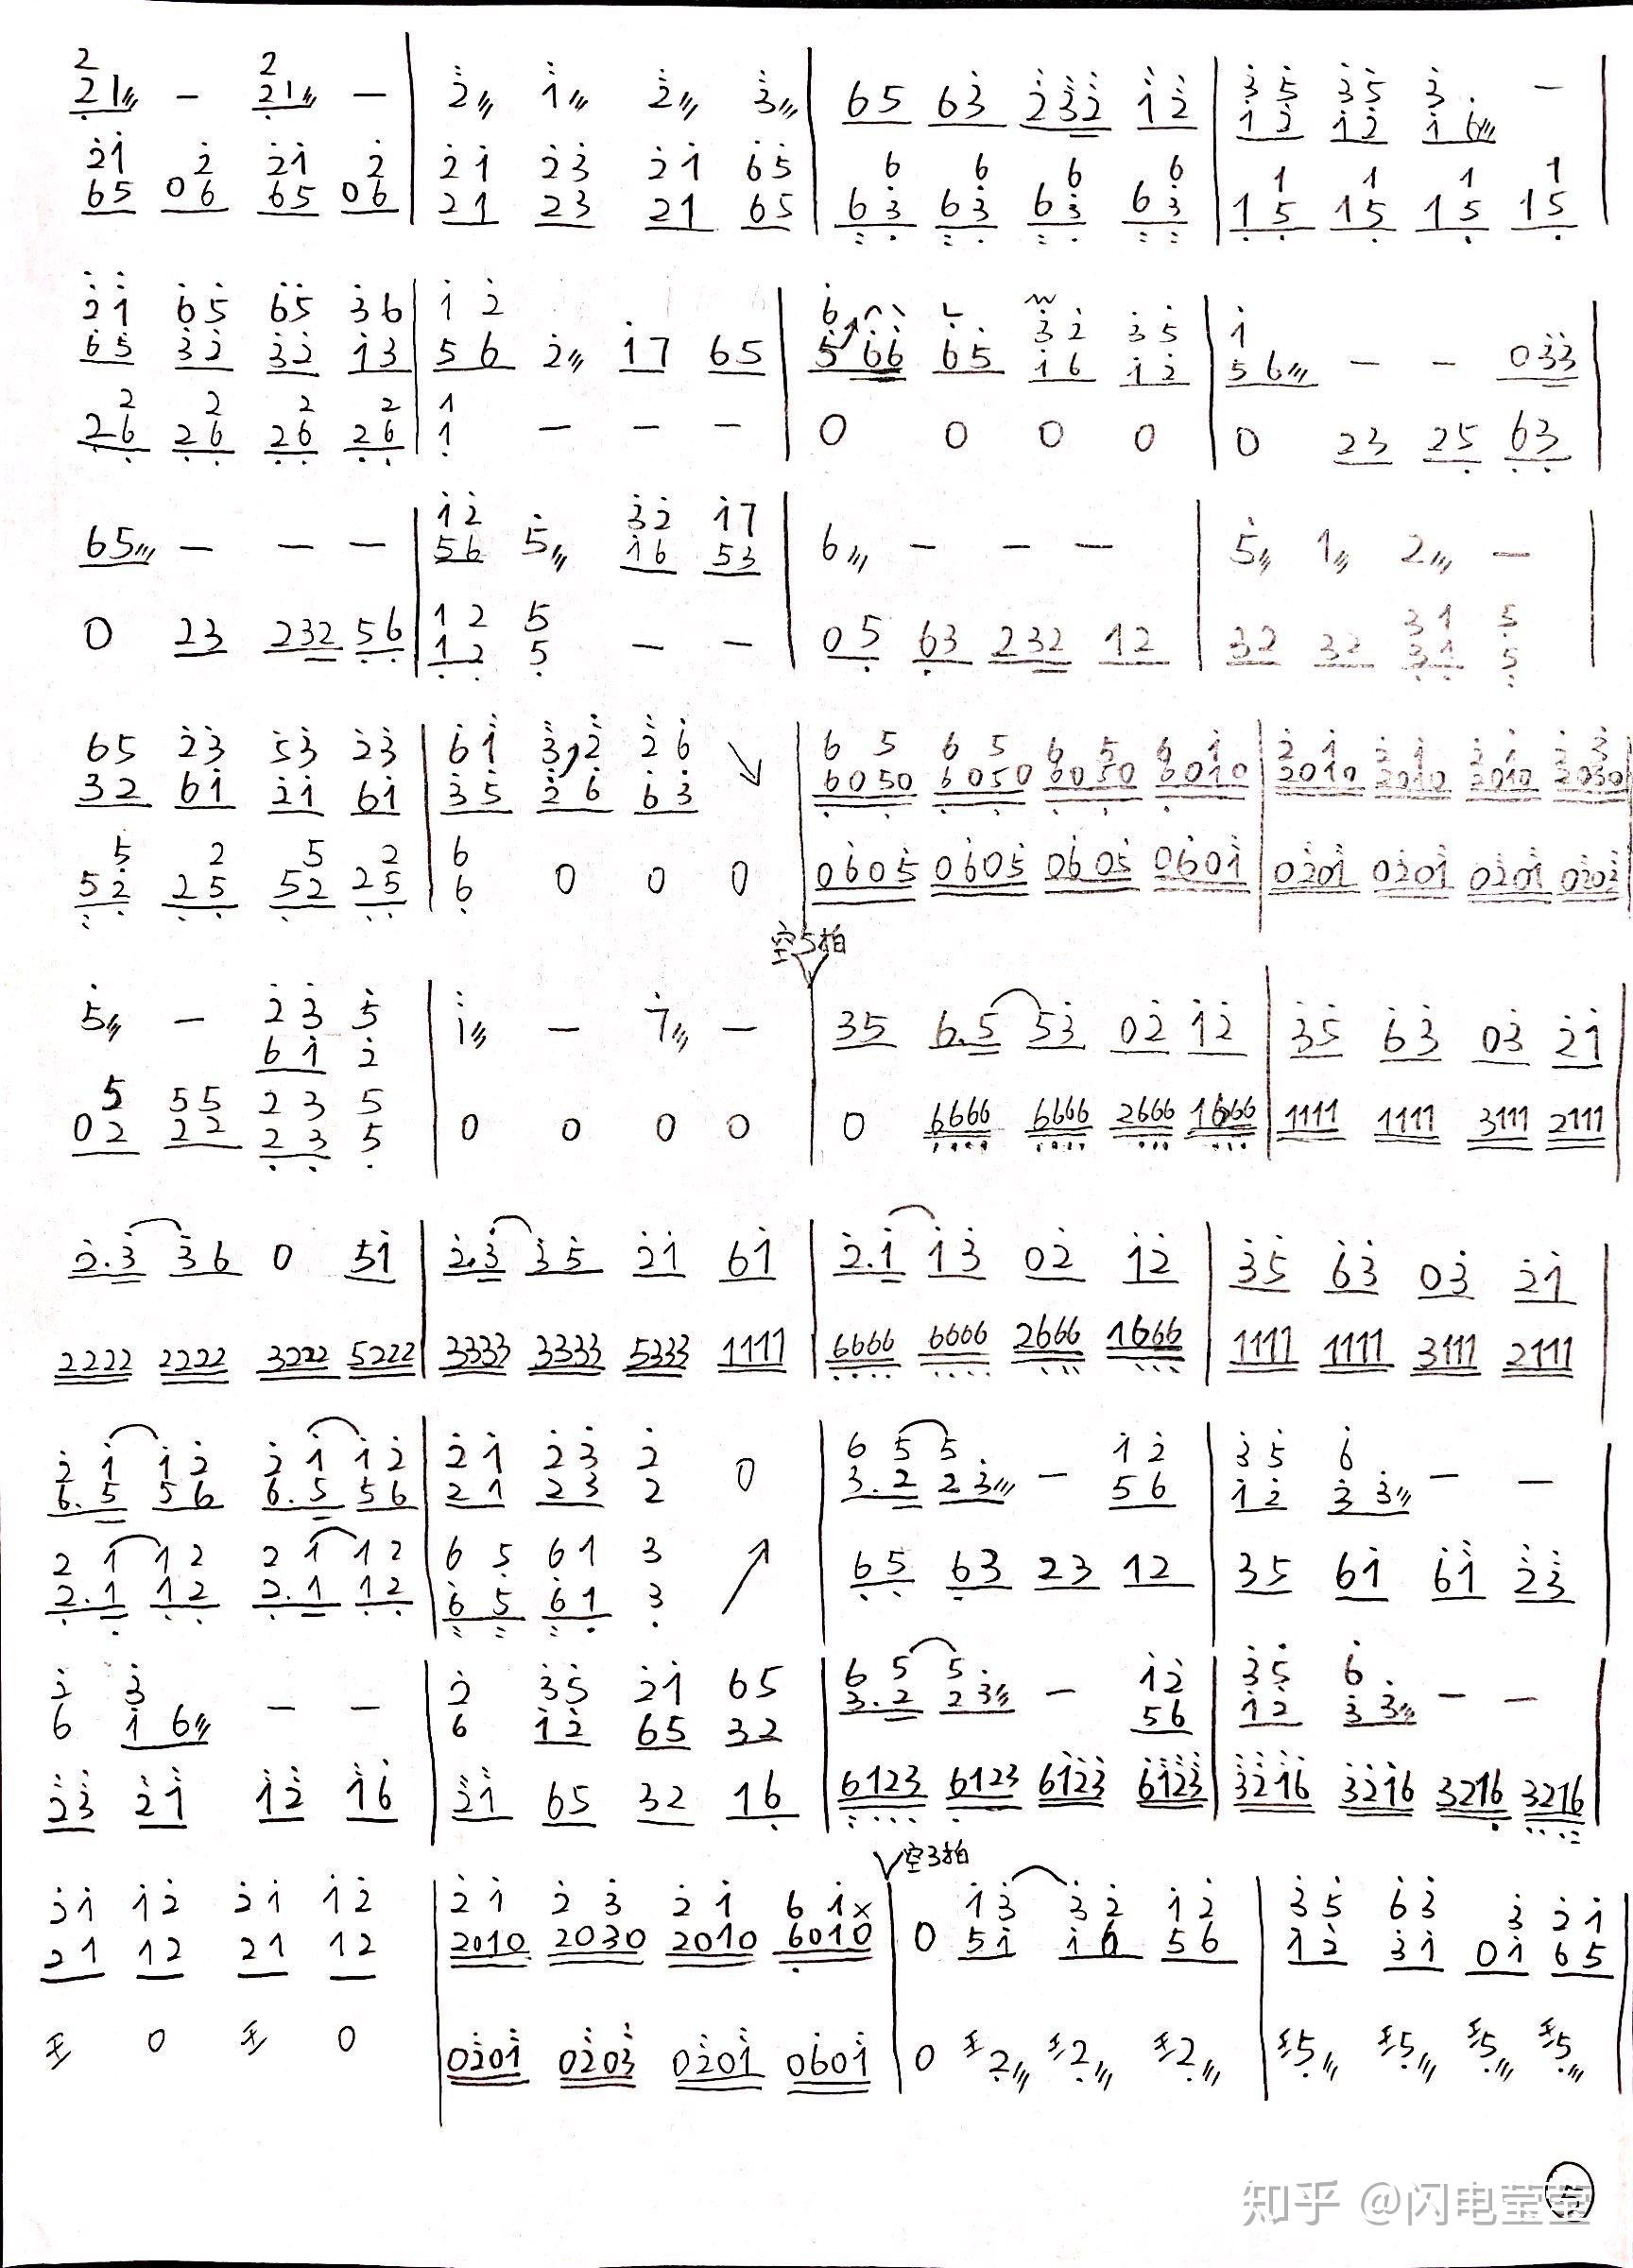 2 2
21 — 21 — | 2 1 2 3 | 65 63 232 12 | 35 35 3 . —
12 12 1 6
21 2 21 2 21 23 21 65 6 6 6 6 1 1 1 1
65 06 65 06 | 21 23 21 65 | 63 63 63 63 | 15 15 15 15
21 65 65 36 | 12 6 32 35 1
65 32 32 13 | 56 2 17 65 | 5 66 65 16 12 | 56 — — 033
2 2 2 2 1
26 26 26 26 | 1 — — — | 0 0 0 0 | 0 23 25 63
12 32 17
65 — — — | 56 5 16 53 | 6 — — — | 5 1 2 —
12 5 31 5
0 23 232 56 | 12 5 — — | 05 63 232 12 | 32 32 31 5
65 23 53 23 | 61 3,2 26 ↘ | 6 5 6 5 6 5 6 1 | 2 1 2 1 2 1 2 3
32 61 21 61 | 35 26 63 | 6050 6050 6050 6010 | 2010 2010 2010 2030
5 2 5 2 6
52 25 52 25 | 6 0 0 0 | 0605 0605 0605 0601 | 0201 0201 0201 0202
空5拍
5 — 23 5 | 1 — 7 — | 35 6.5 53 02 12 | 35 63 03 21
61 2
5 55 23 5
02 22 23 5 | 0 0 0 0 | 0 6666 6666 2666 1666 | 1111 1111 3111 2111
2.3 36 0 51 | 2.3 35 21 61 | 2.1 13 02 12 | 35 63 03 21
2222 2222 3222 5222 | 3333 3333 5333 1111 | 6666 6666 2666 1666 | 1111 1111 3111 2111
2 1 12 2 1 12 | 21 23 2 0 | 6 5 5 . — 12 | 35 6 . — —
6.5 56 6.5 56 | 21 23 2 | 3.2 23 56 | 12 33
2 1 12 2 1 12 | 65 61 3 ↗
2.1 12 2.1 12 | 65 61 3 | 65 63 23 12 | 35 61 61 23
2 3 — — | 2 35 21 65 | 6 5 5 . — 12 | 35 6 . — —
6 16 | 6 12 65 32 | 3.2 23 56 | 12 33
23 21 12 16 | 21 65 32 16 | 6123 6123 6123 6123 | 3216 3216 3216 3216
空3拍
21 12 21 12 | 21 23 21 61x | 13 32 12 | 35 63 3 21
21 12 21 12 | 2010 2030 2010 6010 | 0 51 16 56 | 12 31 01 65
0 0 | 0201 0203 0201 0601 | 0 2 2 2 | 5 5 5 5
知乎 @闪电莹莹